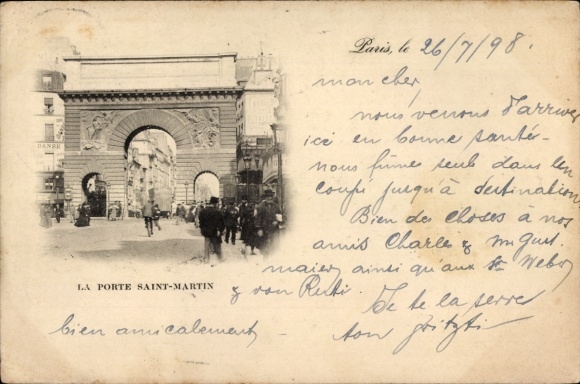 Paris, le 26/7/98.
mon cher,
nous venons d'arriver
ici en bonne santé.
nous fûme seuls dans len
coupé jusqu'à destination
Bien des choses à nos
amis Charle & Mr Gust.
maier, ainsi qu'aux St Weber
& von
Je te la serre
bien amicalement
ton
DANSE
LA PORTE SAINT-MARTIN